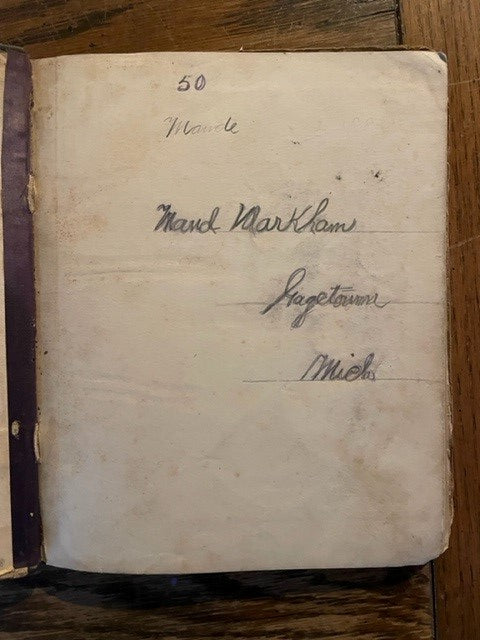 50
Maude
Maud Markham
Gagetown
Mich